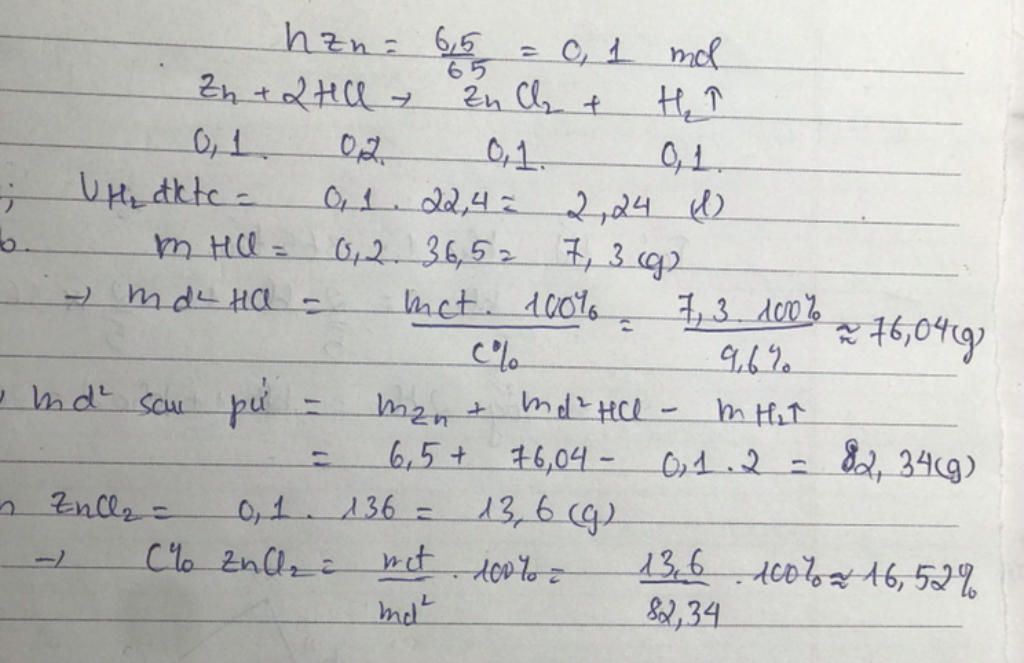 nZn = 6,5/65 = 0,1 mol
Zn + 2HCl → ZnCl₂ + H₂↑
0,1. 0,2. 0,1. 0,1.
; VH₂ đktc = 0,1 . 22,4 = 2,24 (l)
b. mHCl = 0,2 . 36,5 = 7,3 (g)
→ md² HCl = mct . 100% / C% = 7,3 . 100% / 9,6% ≈ 76,04(g)
md² sau pứ = mZn + md² HCl - mH₂↑
= 6,5 + 76,04 - 0,1 . 2 = 82,34(g)
ZnCl₂ = 0,1 . 136 = 13,6 (g)
→ C% ZnCl₂ = mct/md² . 100% = 13,6/82,34 . 100% ≈ 16,52%